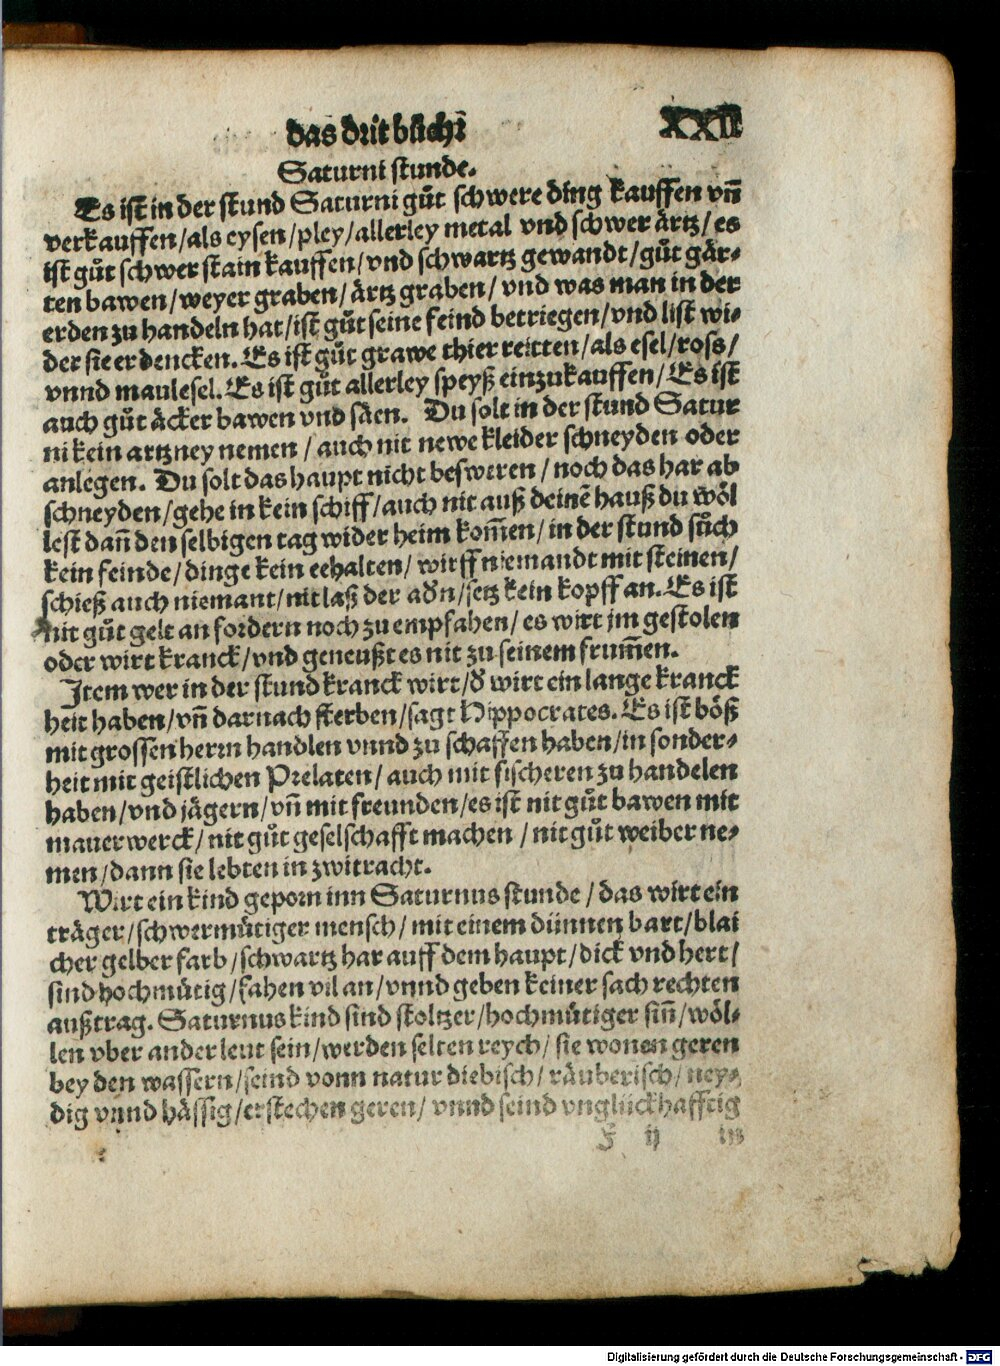 das drit bůch
XXII
Saturni stunde.
Es ist in der stund Saturni gůt schwere ding kauffen vñ
verkauffen/als eysen/pley/allerley metal vnd schwer ärtz/es
ist gůt schwer stain kauffen/vnd schwartz gewandt/gůt gär-
ten bawen/weyer graben/ärtz graben/vnd was man in der
erden zu handeln hat/ist gůt seine feind betriegen/vnd list wi-
der sie erdencken. Es ist gůt grawe thier reitten/als esel/ross/
vnnd maulesel. Es ist gůt allerley speyß einzukauffen/Es ist
auch gůt äcker bawen vnd säen. Du solt in der stund Satur
ni kein artzney nemen/auch nit newe kleider schneyden oder
anlegen. Du solt das haupt nicht besweren/noch das har ab
schneyden/gehe in kein schiff/auch nit auß deinē hauß du wöl
lest dañ den selbigen tag wider heim kom̄en/in der stund sůch
kein feinde/dinge kein eehalten/wirff niemandt mit steinen/
schieß auch niemant/nit laß der adn/setz kein kopff an. Es ist
nit gůt gelt an fordern noch zu empfahen/es wirt jm gestolen
oder wirt kranck/vnd geneußt es nit zu seinem frum̄en.
Item wer in der stund kranck wirt/d wirt ein lange kranck
heit haben/vñ darnach sterben/sagt Hippocrates. Es ist böß
mit grossen herrn handlen vnnd zu schaffen haben/in sonder-
heit mit geistlichen Prelaten/auch mit fischeren zu handelen
haben/vnd jägern/vñ mit freunden/es ist nit gůt bawen mit
mauerwerck/nit gůt geselschafft machen/nit gůt weiber ne-
men/dann sie lebten in zwitracht.
Wirt ein kind geporn inn Saturnus stunde/das wirt ein
träger/schwermütiger mensch/mit einem dünnen bart/blai
cher gelber farb/schwartz har auff dem haupt/dick vnd hert/
sind hochmütig/fahen vil an/vnnd geben keiner sach rechten
außtrag. Saturnus kind sind stoltzer/hochmütiger siñ/wöl-
len vber ander leut sein/werden selten reych/sie wonen geren
bey den wassern/seind vonn natur diebisch/räuberisch/ney-
dig vnnd hässig/erstechen geren/vnnd seind vnglückhafftig
F ij in
Digitalisierung gefördert durch die Deutsche Forschungsgemeinschaft - DFG